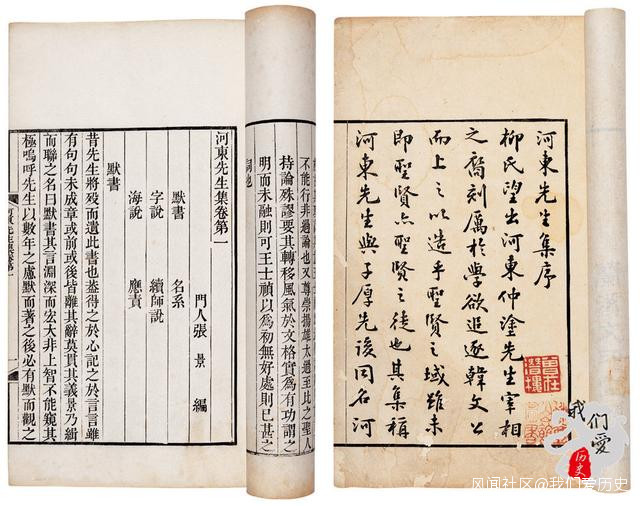 河東先生集序
柳氏望出河東仲塗先生宰相
之裔刻厲於學欲追逐韓文公
而上之以造乎聖賢之域雖未
即聖賢亦聖賢之徒也其集稱
河東先生與子厚先後同名河
曾在潛樓
不能行非過論也又尊崇揚雄太過至比之聖人
持論殊謬要其轉移風氣於文格實為有功謂之
明而未融則可王士禎以為初無好處則已甚之
詞也
河東先生集卷第一
門人張 景 編
默書 名系
字說 續師說
海說 應責
默書
昔先生將歿而遺此書也葢得之於心記之於言言雖
有句句未成章或前或後皆離其辭莫貫其義景乃緝
而聯之名曰默書其言淵深而宏大非上智不能窺其
極嗚呼先生以數年之慮默而著之後必有默而觀之
我们爱
历史
风闻社区@我们爱历史